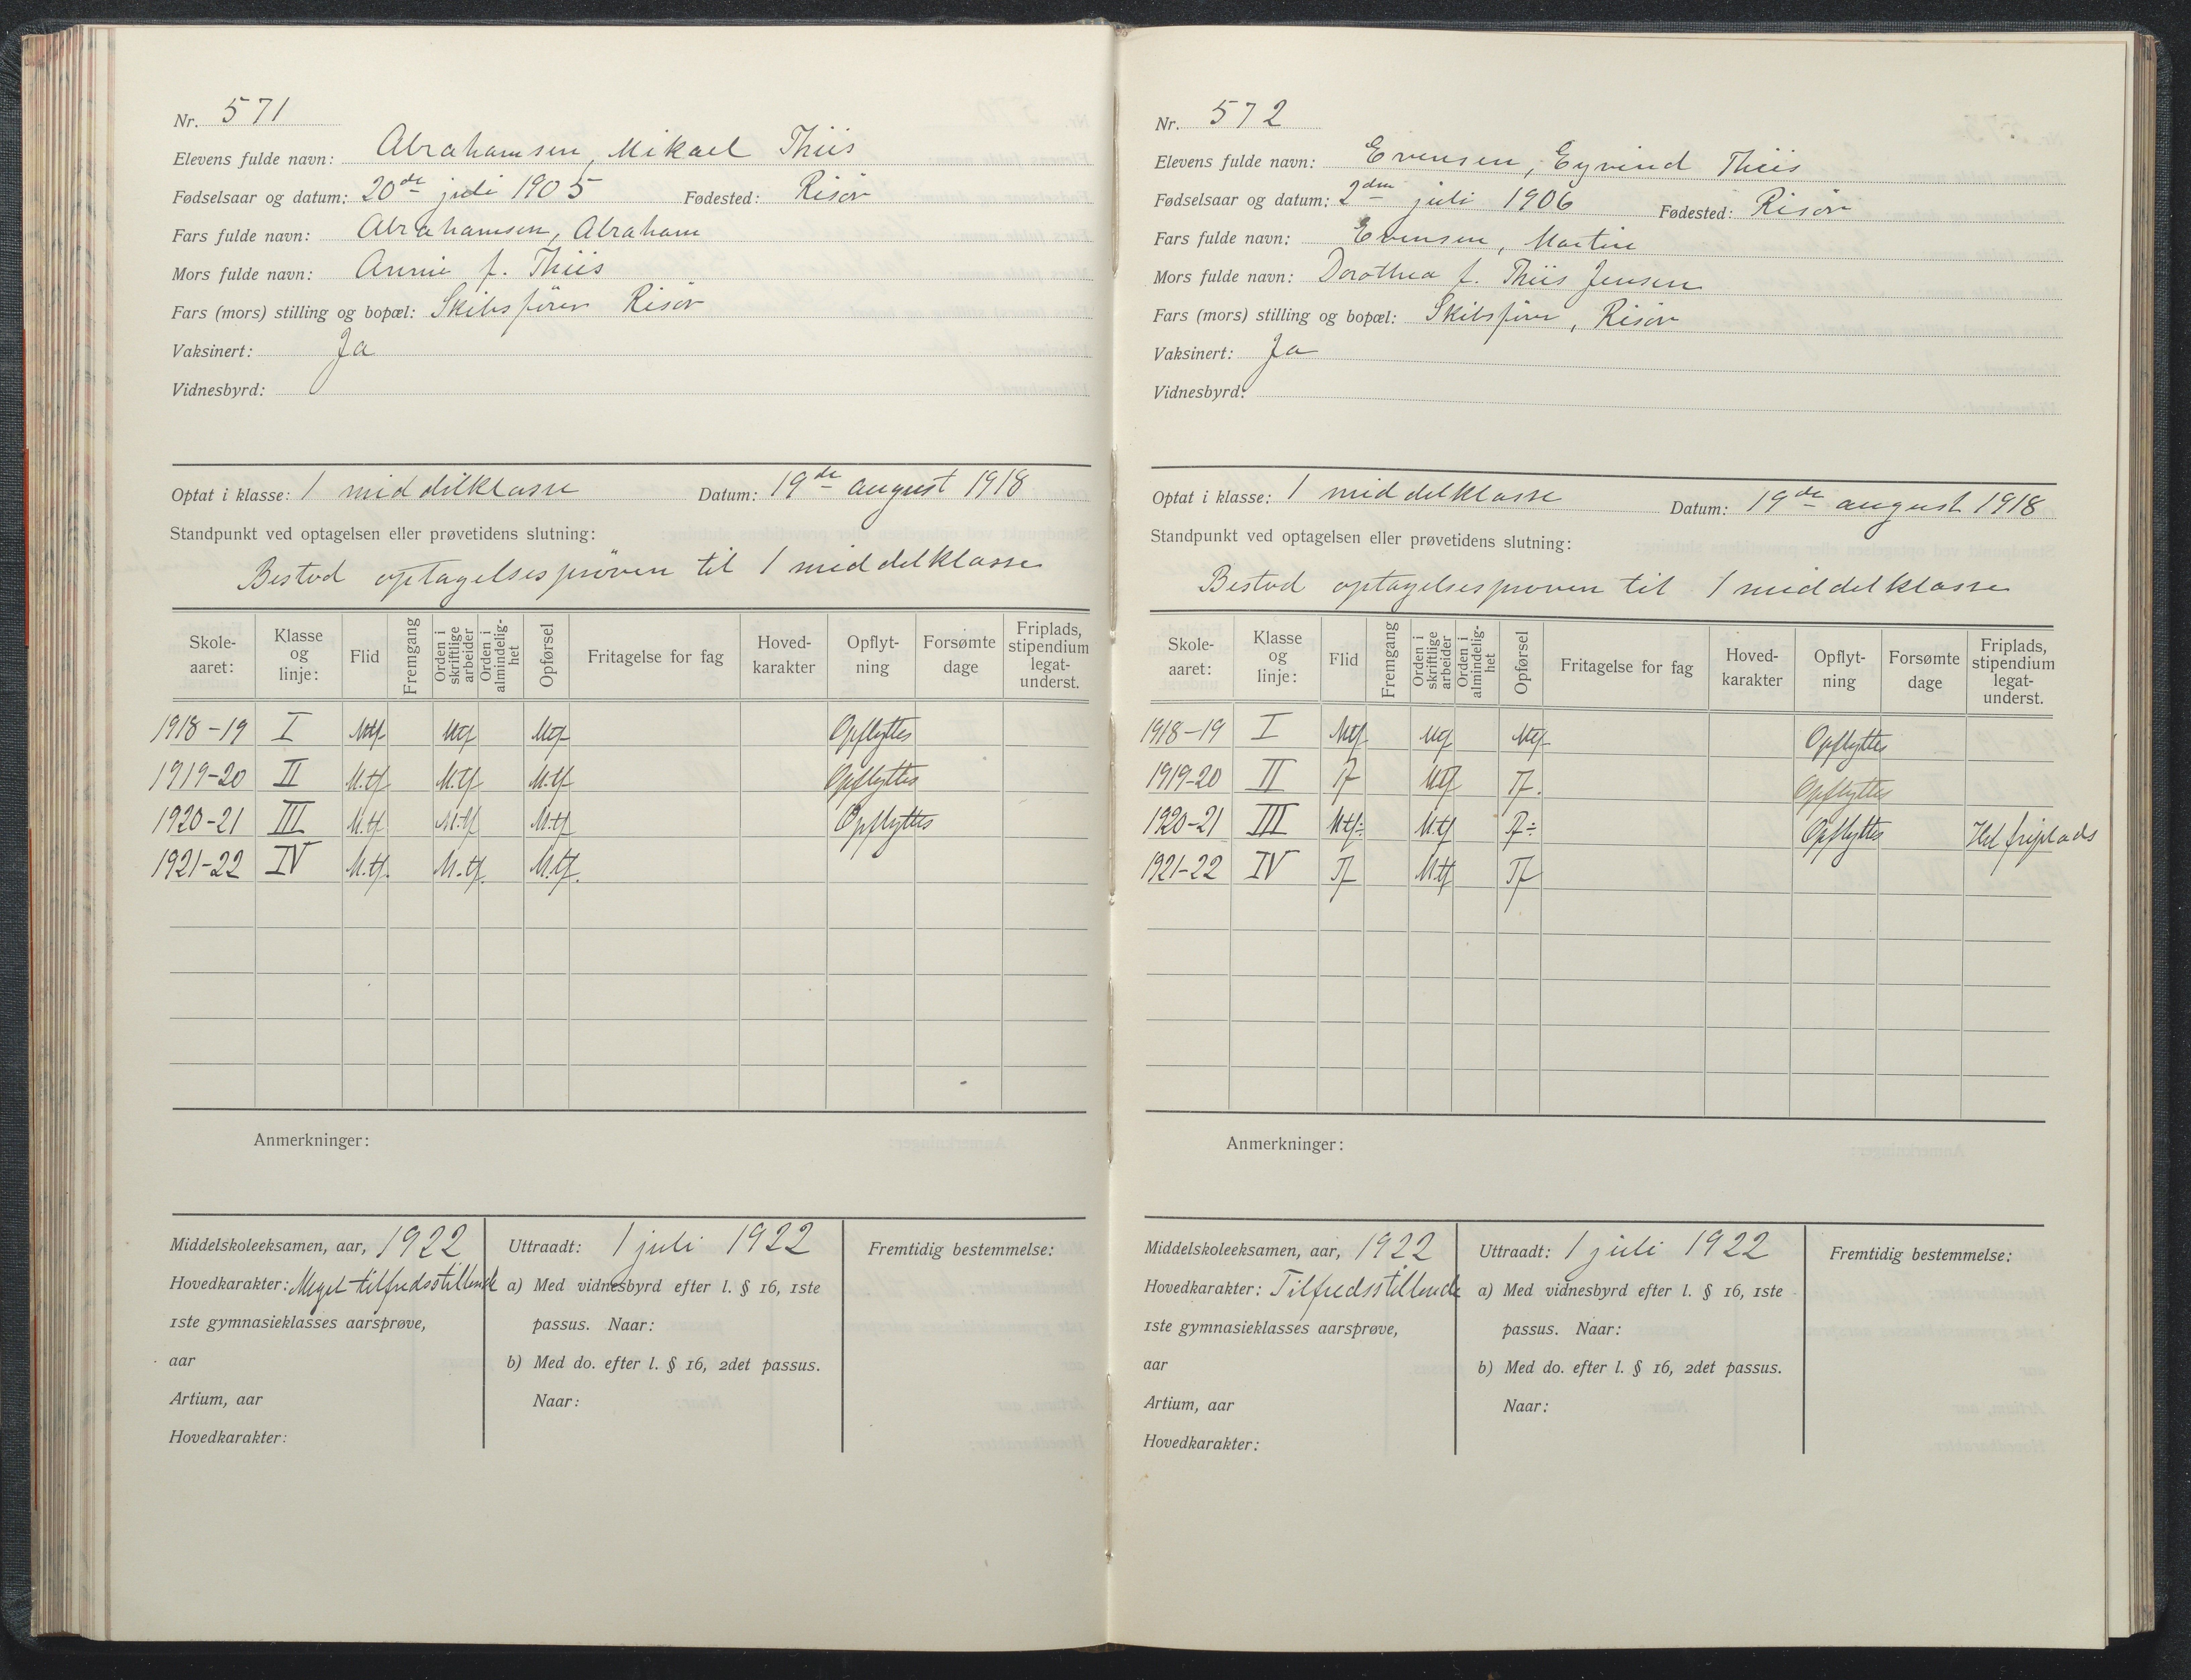 Nr. 571
Elevens fulde navn: Abrahamsen, Mikael Thiis
Fødselsaar og datum: 20de juli 1905 Fødested: Risör
Fars fulde navn: Abrahamsen, Abraham
Mors fulde navn: Annie f. Thiis
Fars (mors) stilling og bopæl: Skibsfører Risör
Vaksinert: Ja
Vidnesbyrd:
Optat i klasse: 1 middelklasse Datum: 19de august 1918
Standpunkt ved optagelsen eller prøvetidens slutning:
Bestod optagelsespröven til 1 middelklasse
Skole-aaret: Klasse og linje: Flid Fremgang Orden i skriftlige arbeider Orden i almindelig-het Opførsel Fritagelse for fag Hoved-karakter Opflyt-ning Forsømte dage Friplads, stipendium legat-underst.
1918-19 I Mtf Mtf Mtf Opflyttes
1919-20 II M.tf M.tf M.tf Opflyttes
1920-21 III M.tf M.tf M.tf Opflyttes
1921-22 IV M.tf. M.tf. M.tf.
Anmerkninger:
Middelskoleeksamen, aar, 1922
Hovedkarakter: Meget tilfredsstillende
1ste gymnasieklasses aarsprøve,
aar
Artium, aar
Hovedkarakter:
Uttraadt: 1 juli 1922
a) Med vidnesbyrd efter l. § 16, 1ste
passus. Naar:
b) Med do. efter l. § 16, 2det passus.
Naar:
Fremtidig bestemmelse:
Nr. 572
Elevens fulde navn: Evensen, Eyvind Thiis
Fødselsaar og datum: 2den juli 1906 Fødested: Risör
Fars fulde navn: Evensen, Martin
Mors fulde navn: Dorothea f. Thiis Jensen
Fars (mors) stilling og bopæl: Skibsfører, Risör
Vaksinert: Ja
Vidnesbyrd:
Optat i klasse: 1 middelklasse Datum: 19de august 1918
Standpunkt ved optagelsen eller prøvetidens slutning:
Bestod optagelsesprøven til 1 middelklasse
Skole-aaret: Klasse og linje: Flid Fremgang Orden i skriftlige arbeider Orden i almindelig-het Opførsel Fritagelse for fag Hoved-karakter Opflyt-ning Forsømte dage Friplads, stipendium legat-underst.
1918-19 I Mtf Mtf Mtf Opflyttes
1919-20 II Tf Mtf Tf. Opflyttes
1920-21 III Mtf÷ M.tf Tf÷ Opflyttes Hel friplads
1921-22 IV Tf M.tf Tf
Anmerkninger:
Middelskoleeksamen, aar, 1922
Hovedkarakter: Tilfredsstillende
1ste gymnasieklasses aarsprøve,
aar
Artium, aar
Hovedkarakter:
Uttraadt: 1 juli 1922
a) Med vidnesbyrd efter l. § 16, 1ste
passus. Naar:
b) Med do. efter l. § 16, 2det passus.
Naar:
Fremtidig bestemmelse: